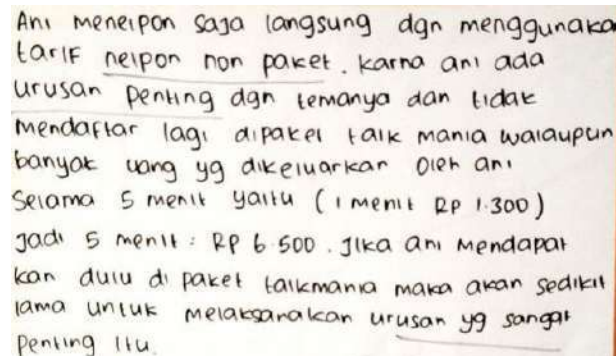 Ani menelpon saja langsung dgn menggunakan
tarif nelpon non paket. karna ani ada
urusan penting dgn temanya dan tidak
mendaftar lagi dipaket talk mania walaupun
banyak uang yg dikeluarkan oleh ani
Selama 5 menit yaitu (1 menit RP 1.300)
Jadi 5 menit : RP 6.500. Jika ani mendapat
kan dulu di paket talkmania maka akan sedikit
lama untuk melaksanakan urusan yg sangat
penting itu.